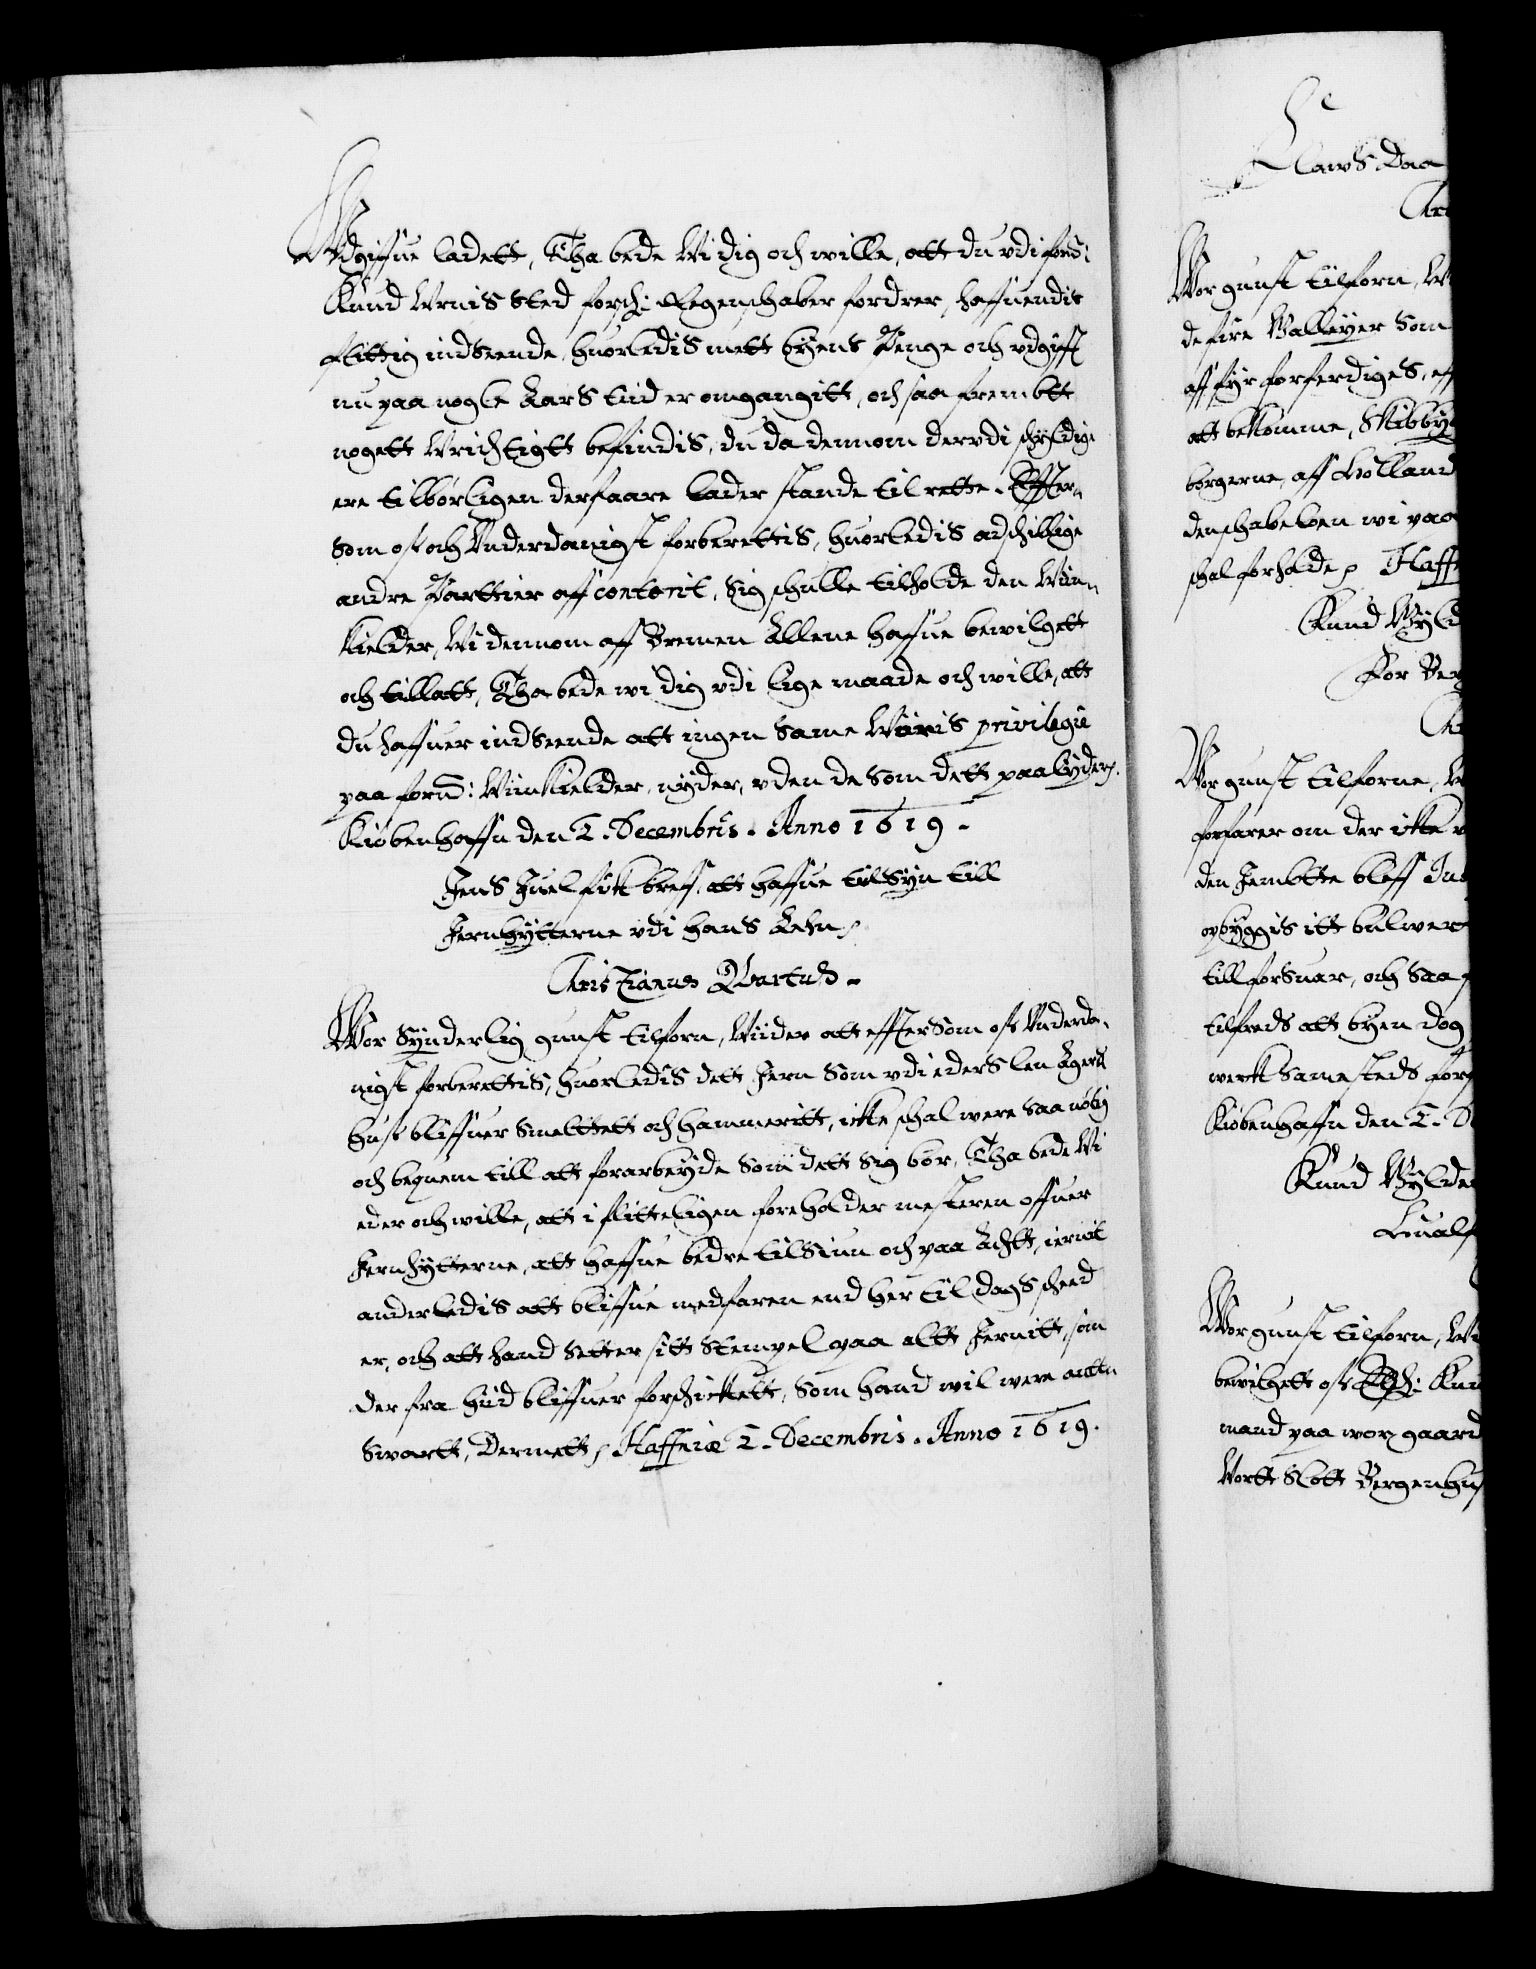 Wdgiffue ladett, Tha bede Wi dig och wille, att du vdi ford:
Knud Wrnis Sted forsk: Regenschaber fordrer, haffuendis
flittig indseende, huorledis mett byens Penge och vdgifft
nu paa nogle Aars tiid er omgangitt, och saa frembt
nogett Wrichtigtt befindis, du da dennom dervdi schyldige
ere tilbørligen derfaare lader stande til rette. Effter-
som oss och Vnderdanigst forberettis, huorledis adschillige
andre Parttier aff contorit, sig schulle tilholde den Wiin-
kielder, Wi dennom aff Bremen Allene haffue bewilgett
och tillatt, Tha bede wi dig vdi lige maade och wille, att
du haffuer indseende att ingen same Wiiris privilegie
paa fornd: Wiinkielder, nyder, vden de som dett paalyder.
Kiøbenhaffn den 2. Decembris. Anno 1619.
Jens Juel fik breff, att haffue tilsyn till
Jernhytterne vdi hans Lehn
Christianus Quartus.
Wor synderlig gunst tilforn, Wiider att efftersom oss Vnderda-
nigst forberettis, huorledis dett Jern som vdi eders len Agers
huss bliffuer smelttett och hammeritt, icke schal were saa nøttig
och beqvem till att forarbeyde som dett sig bør, Tha bede Wi
eder och wille, att i flitteligen foreholder mesteren offuer
Jernhytterne, att haffue bedre tilsiun och paa Achtt, iernit
anderledis att bliffue medfaren end her til dags scheed
er, och att hand setter sitt Stempel paa altt Jernitt, som
der fra hiid bliffuer forschickett, som hand wil were antt-
swartt, Dermett Haffniæ 2. Decembris. Anno 1619.
Claus Daa
Wor gunst tilforn, Wi
de fire Walleyer som
aff fyr forferdiges, eff
att bekomme, Skibby
borgerne, aff Holland
den schabelon wi paa
schal forholde Haff
Knud Gyld
For Ber
Wor gunst tilforne, W
forfarer om der icke
den Jembtte bleff
opbyggis itt bulwer
till forsuar, och saa
tilfreds att byen dog
werck samesteds for
Kiøbenhaffn den 2. D
Knud Gylde
Wor gunst tilforn, Wi
bewilgett oss Elsk: Knu
mand paa wor gaard
Wortt Slott Bergenhuss